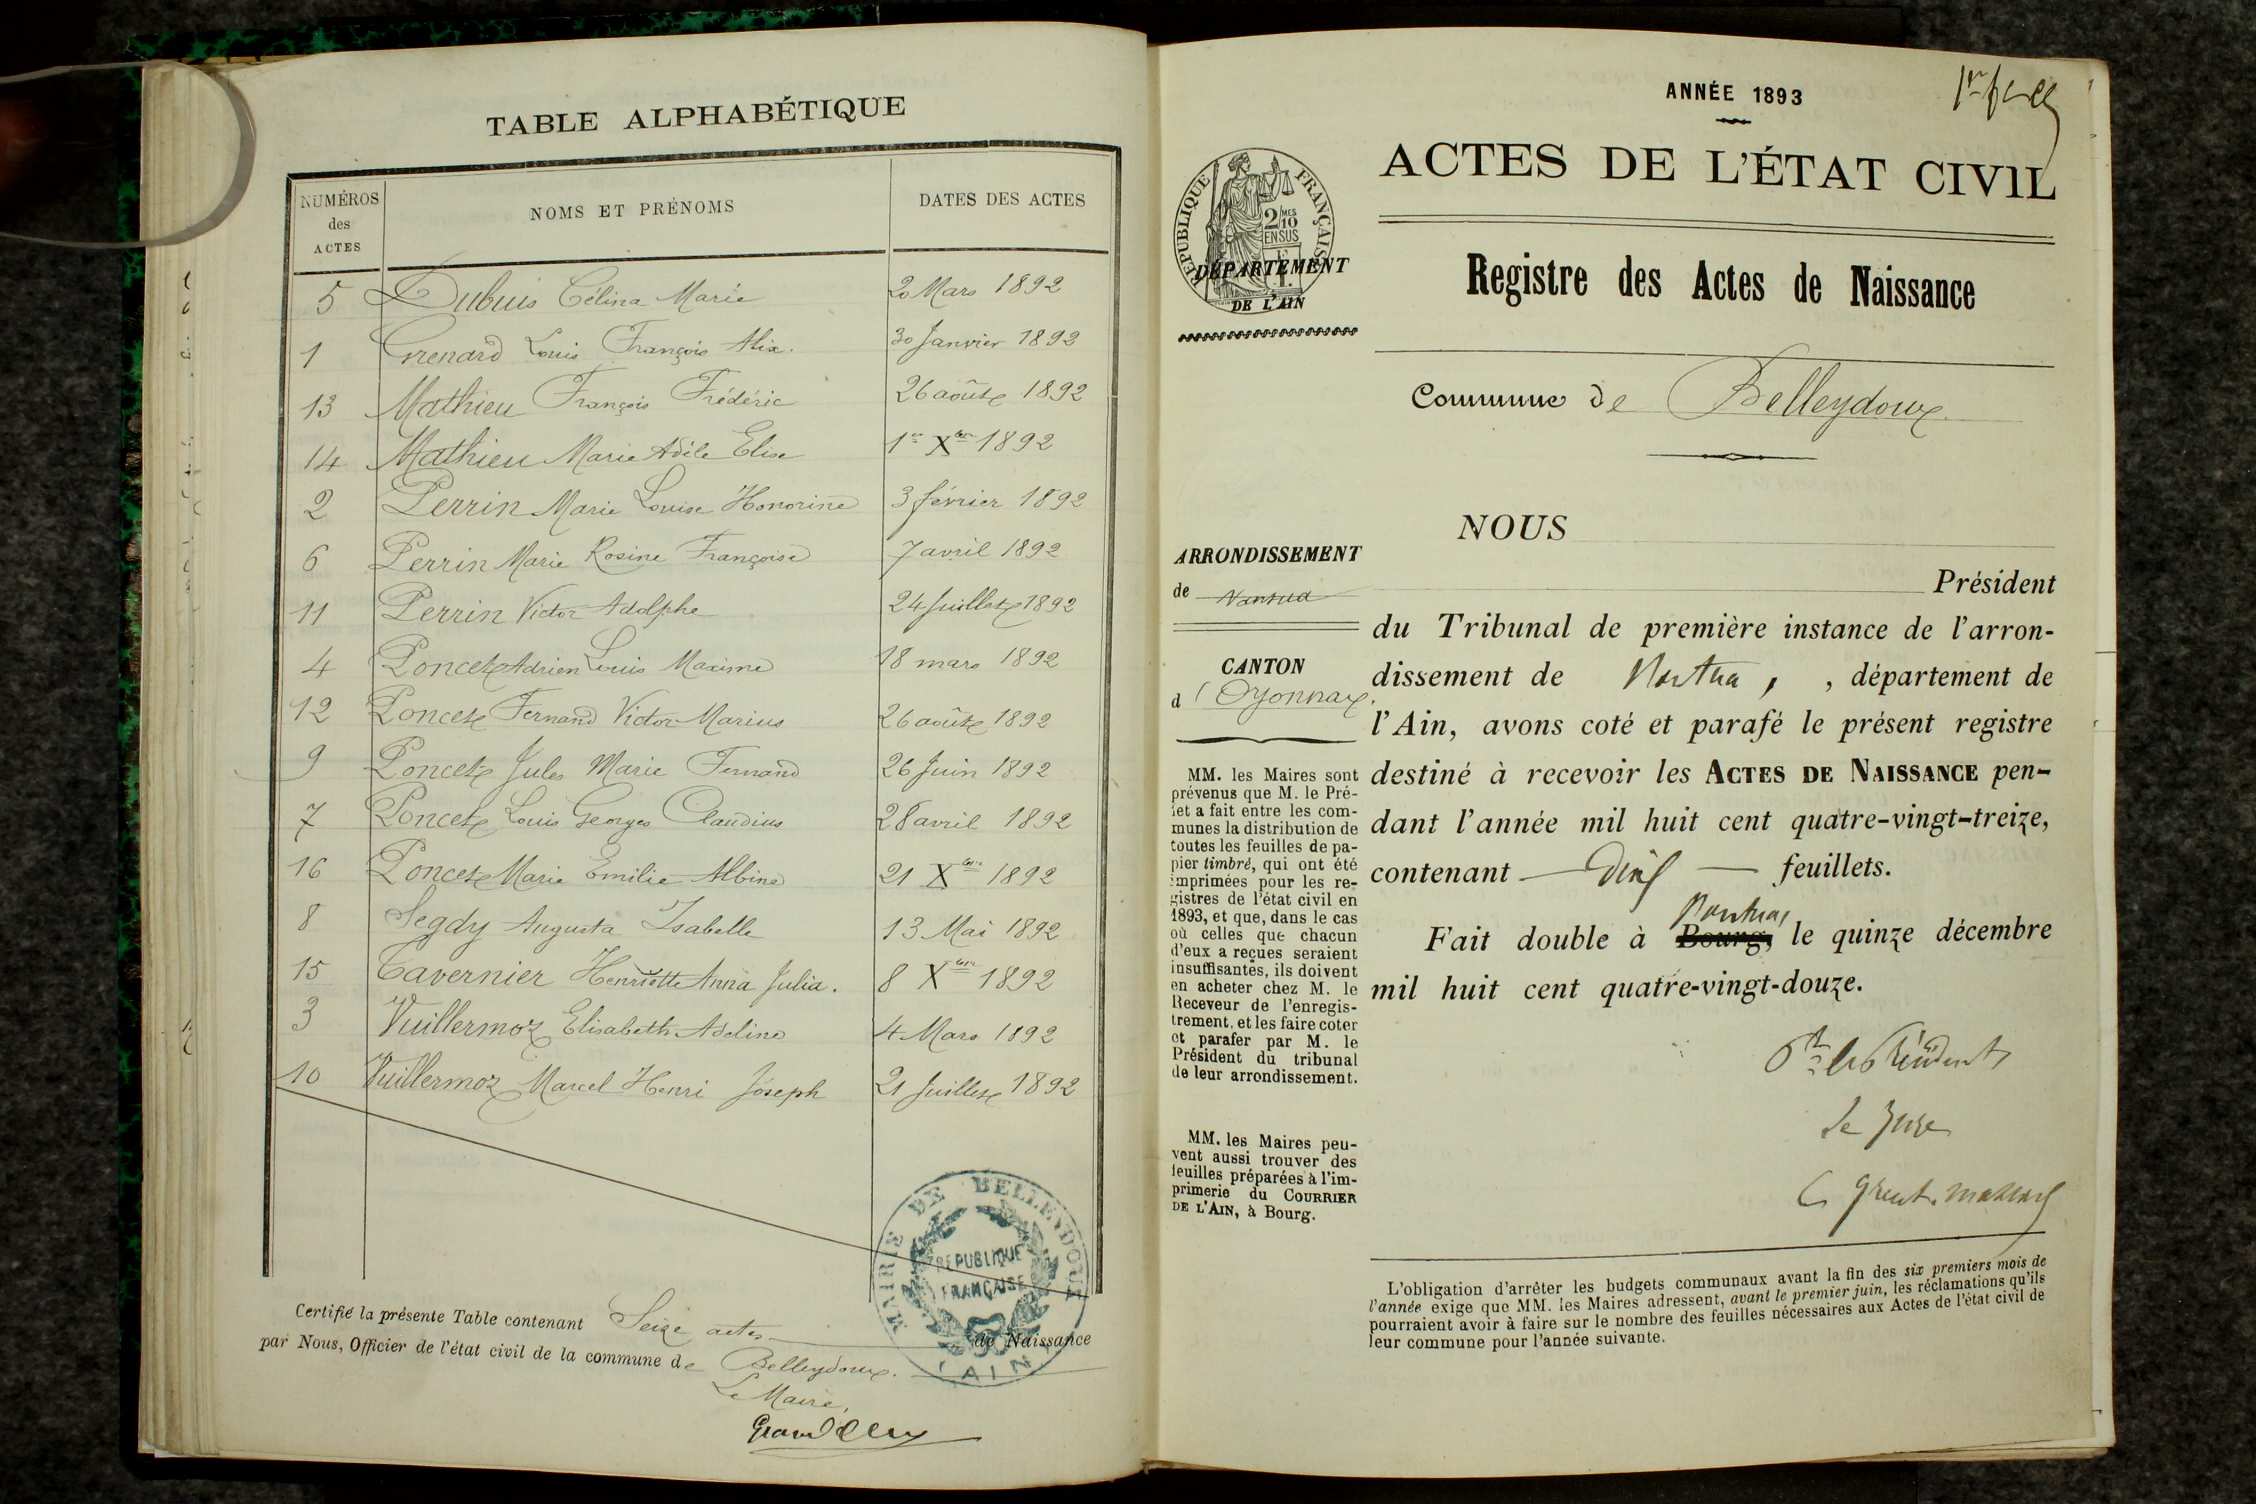 TABLE ALPHABÉTIQUE
NUMÉROS des ACTES
NOMS ET PRÉNOMS
DATES DES ACTES
5 Dubuis Célina Marie 20 Mars 1892
1 Grenard Louis François Alix. 30 Janvier 1892
13 Mathieu François Frédéric 26 août 1892
14 Mathieu Marie Adèle Elise 1er Xbre 1892
2 Perrin Marie Louise Honorine 3 février 1892
6 Perrin Marie Rosine Françoise 7 avril 1892
11 Perrin Victor Adolphe 24 Juillet 1892
4 Poncet Adrien Louis Maxime 18 mars 1892
12 Poncet Fernand Victor Marius 26 août 1892
9 Poncet Jules Marie Fernand 26 Juin 1892
7 Poncet Louis Georges Claudius 28 avril 1892
16 Poncet Marie Emilie Albine 21 Xbre 1892
8 Segdy Augusta Isabelle 13 Mai 1892
15 Tavernier Henriette Anna Julia. 8 Xbre 1892
3 Vuillermoz Elisabeth Adeline 4 Mars 1892
10 Vuillermoz Marcel Henri Joseph 21 Juillet 1892
MAIRIE DE BELLEYDOUX
RÉPUBLIQUE
FRANÇAISE
(AIN)
Certifié la présente Table contenant Seize actes de Naissance
par Nous, Officier de l'état civil de la commune de Belleydoux.
Le Maire,
ANNÉE 1893
ACTES DE L'ÉTAT CIVIL
RÉPUBLIQUE FRANÇAISE
2/10
MES
EN SUS
DÉPARTEMENT
DE L'AIN
Registre des Actes de Naissance
Commune de Belleydoux
ARRONDISSEMENT
de Nantua
CANTON
d'Oyonnax.
MM. les Maires sont
prévenus que M. le Pré-
fet a fait entre les com-
munes la distribution de
toutes les feuilles de pa-
pier timbré, qui ont été
imprimées pour les re-
gistres de l'état civil en
1893, et que, dans le cas
où celles que chacun
d'eux a reçues seraient
insuffisantes, ils doivent
en acheter chez M. le
Receveur de l'enregis-
trement, et les faire coter
et parafer par M. le
Président du tribunal
de leur arrondissement.
MM. les Maires peu-
vent aussi trouver des
feuilles préparées à l'im-
primerie du COURRIER
DE L'AIN, à Bourg.
NOUS
Président
du Tribunal de première instance de l'arron-
dissement de Nantua, , département de
l'Ain, avons coté et parafé le présent registre
destiné à recevoir les ACTES DE NAISSANCE pen-
dant l'année mil huit cent quatre-vingt-treize,
contenant — Dix — feuillets.
Nantua,
Fait double à Bourg, le quinze décembre
mil huit cent quatre-vingt-douze.
Pr le Président
Le Juge
L'obligation d'arrêter les budgets communaux avant la fin des six premiers mois de
l'année exige que MM. les Maires adressent, avant le premier juin, les réclamations qu'ils
pourraient avoir à faire sur le nombre des feuilles nécessaires aux Actes de l'état civil de
leur commune pour l'année suivante.